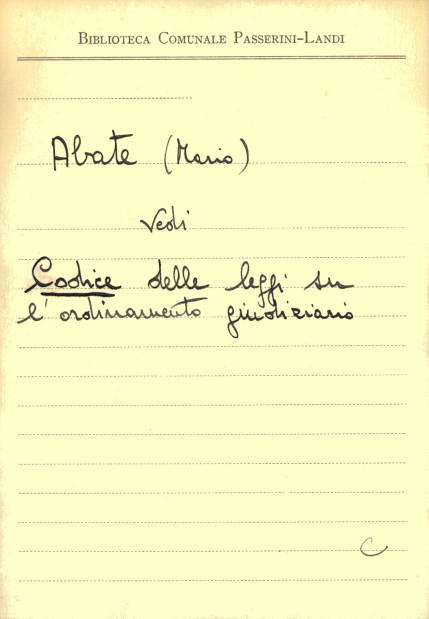 BIBLIOTECA COMUNALE PASSERINI-LANDI
Abate (Mario)
Vedi
Codice delle leggi su
l'ordinamento giudiziario
C